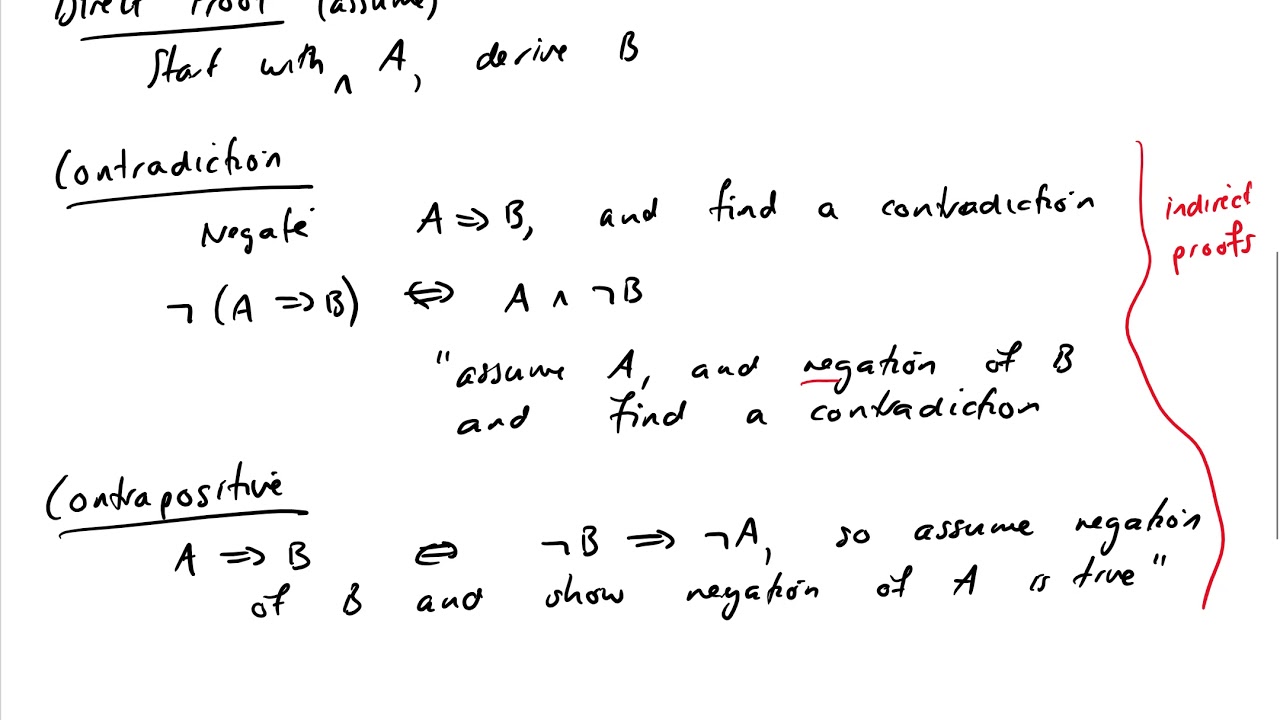 Direct Proof (assume)
Start with ∧ A, derive B
Contradiction
Negate A ⇒ B, and find a contradiction
indirect
proofs
¬ (A ⇒ B) ⇔ A ∧ ¬ B
"assume A, and negation of B
and find a contradiction
Contrapositive
A ⇒ B ⇔ ¬ B ⇒ ¬ A, so assume negation
of B and show negation of A is true"